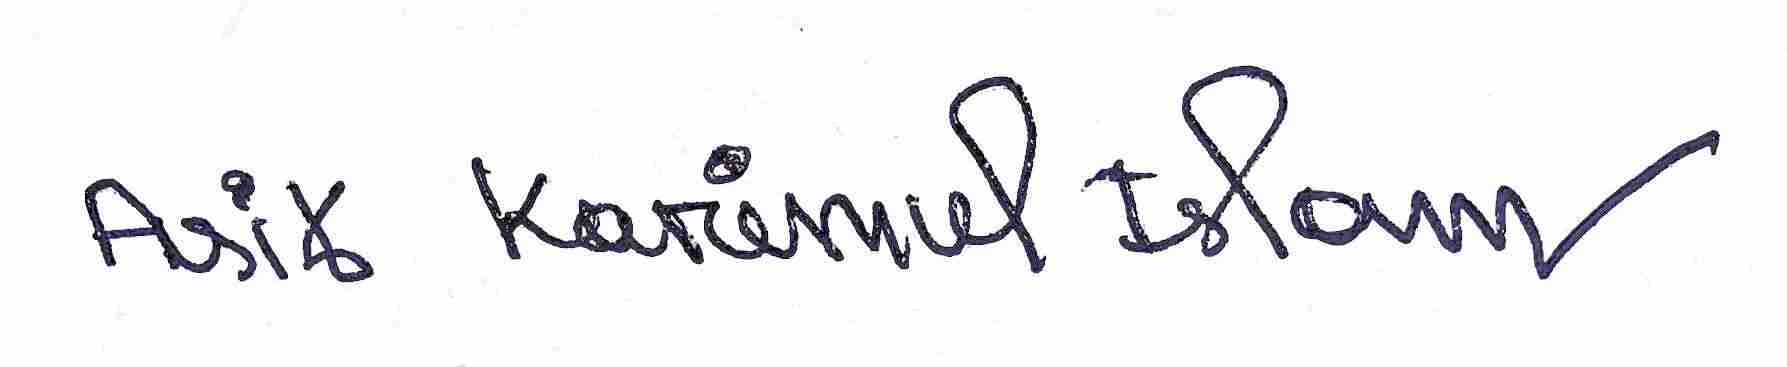 Asik Karimul Islam